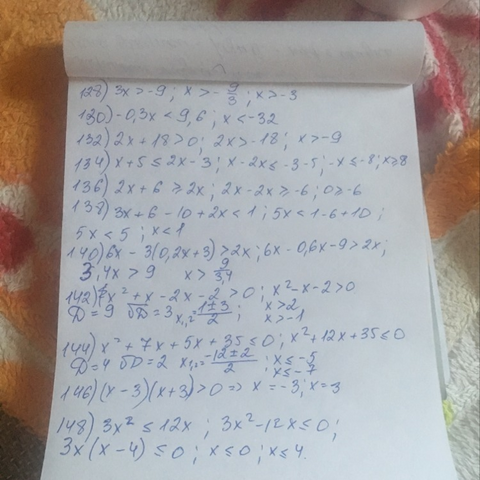 128) 3x > -9; x > -9/3; x > -3
130) -0,3x < 9,6; x < -32
132) 2x + 18 > 0; 2x > -18; x > -9
134) x + 5 ≤ 2x - 3; x - 2x ≤ -3 - 5; -x ≤ -8; x ≥ 8
136) 2x + 6 ≥ 2x; 2x - 2x ≥ -6; 0 ≥ -6
138) 3x + 6 - 10 + 2x < 1; 5x < 1 - 6 + 10;
5x < 5; x < 1
140) 6x - 3(0,2x + 3) > 2x; 6x - 0,6x - 9 > 2x;
3,4x > 9 x > 9/3,4
142) x² + x - 2x - 2 > 0; x² - x - 2 > 0
D = 9 √D = 3 x₁,₂ = 1±3/2; x > 2
x > -1
144) x² + 7x + 5x + 35 ≤ 0; x² + 12x + 35 ≤ 0
D = 4 √D = 2 x₁,₂ = -12±2/2; x ≤ -5
x ≤ -7
146) (x - 3)(x + 3) > 0 => x = -3; x = 3
148) 3x² ≤ 12x; 3x² - 12x ≤ 0;
3x(x - 4) ≤ 0; x ≤ 0; x ≤ 4.